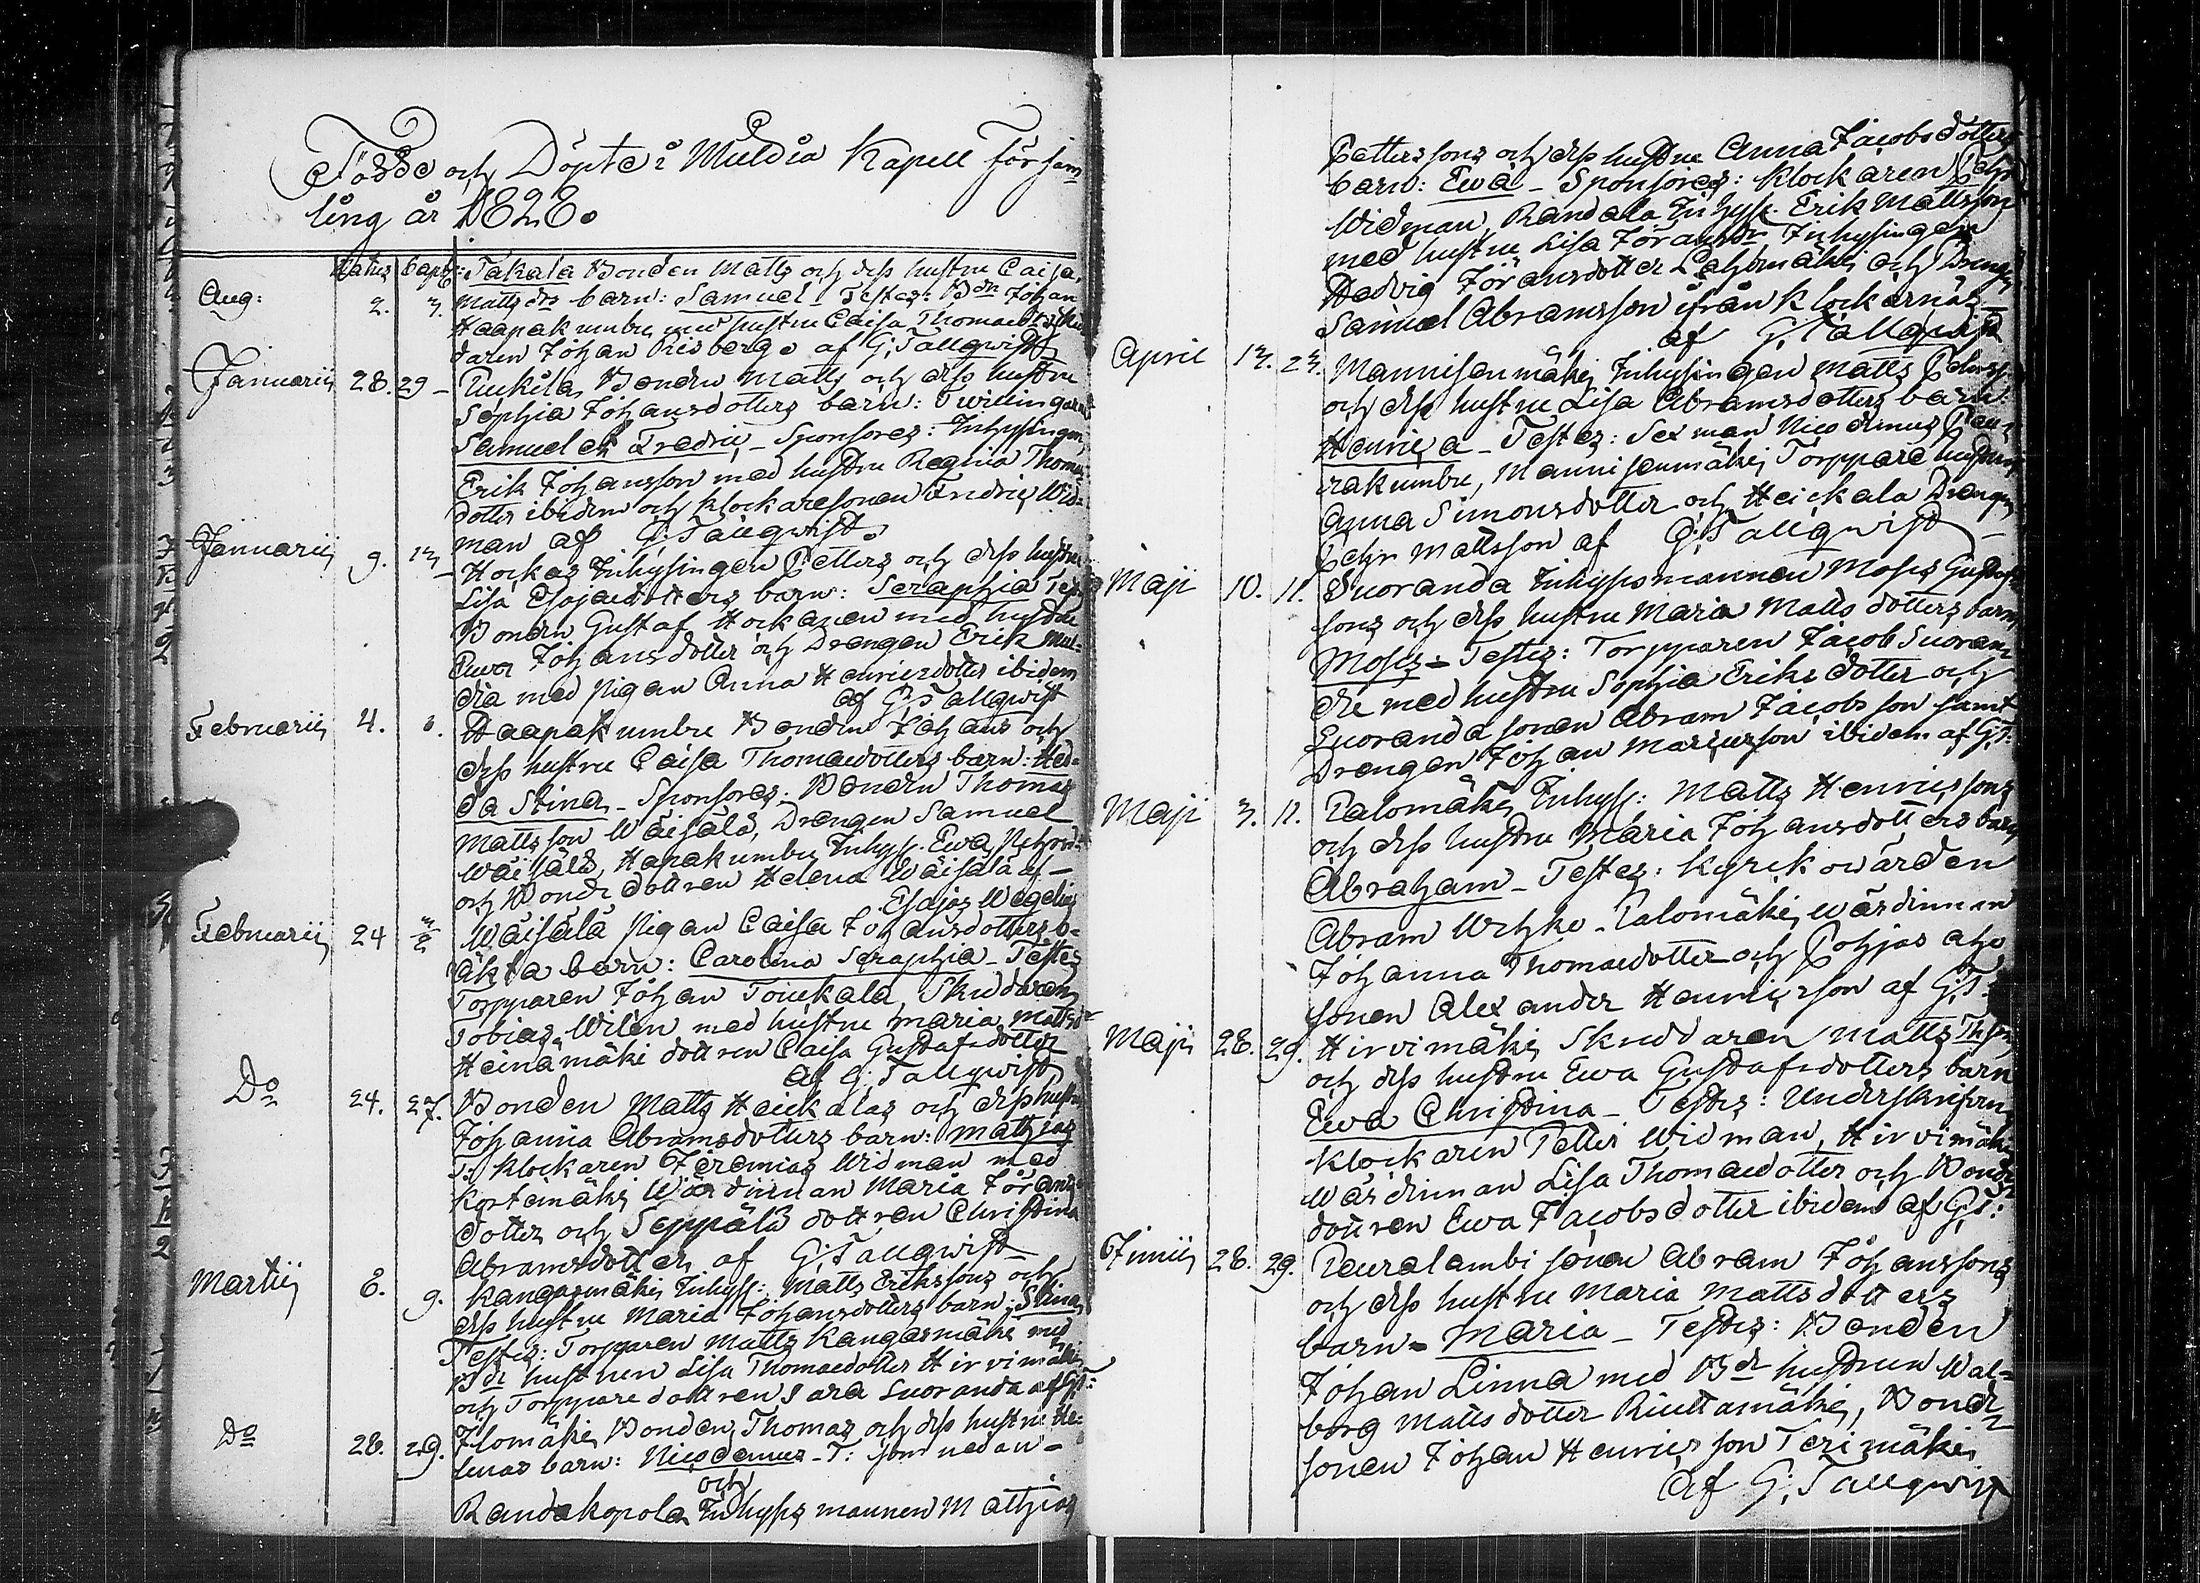 Födde och Döpte i Muldia Kapell Församling
ling år 1828.
Natus Bapt:
Aug: 2. 3. Takala Bonden Matts och dess hustru Caisa
Matts dr barn: Samuel. Testes: Bdn Johan
Haapakumbu med hustru Caisa Thomaedr
daren Johan Risberg. af G: Tallqwist
Januarii 28. 29 Bonden Matts och dess hustru
Sophia Johansdotters barn: Twillingarne
Samuel et Fredric, Sponsores: Inhysingen
Erik Johansson med hustru Regina Thomæ
dotter ibidem och Klockaresonen Fredric Wid-
man af G: Tallqwist.
Januarii 9. 13 Inhysingen Petters och dess hustru
Lisa Esajaedotters barn: Seraphia Test:
Bonden Gustaf Hockanen med hustru
Ewa Johansdotter och Drengen Erik Mul-
dia med Pigan Anna Henricsdotter ibidem
af G: Tallqwist
Februarii 4. Haapakumbu Bonden Johans och
dess hustru Caisa Thomaedotters barn: Hed-
da Stina, Sponsores: Bonden Thomas
Mattsson Wäisälä, Drengen Samuel
Wäisälä, Haapakumbu Inhyss. Ewa
och Bondedottren Helena Wäisälä af
Esajas Wegelius
Februarii 24 3/2 Wäisälä Pigan Caisa Johansdotters o-
äkta barn: Carolina Seraphia - Testes
Torpparen Johan Toiukala, Skräddaren
Tobias Wilén med hustru Maria Mattsdr
Heinämäki dottren Caisa Gustafsdotter
af G: Tallqwist
Do 24. 27. Bonden Matts Heickalas och dess hustru
Johanna Abramsdotters barn: Mathias
T: Klockaren Jeremias Widman med
Kortemäki Wärdinnan Maria Jörans
dotter och Seppälä dottren Christina
Abramsdotter, af G: Tallqwist
Martii 8. 9. Kangasmäki Inhyss: Matts Erikssons och
dess hustru Maria Johansdotters barn: Stina
Testes: Torpparen Matts Kangasmäki med
Bde hustrun Lisa Thomaedotter Hirvimäki
och Torppare dottren Sara Suoranda af GT:
Do 28. 29. Ilomäki Bonden Thomas och dess hustru He-
lenas barn: Nicodemus - T: som nedan-
och
Randakopola Inhyss mannen Mathias
Pettersons och dess hustru Anna Jacobsdotters
barn: Ewa - Sponsores: Klockaren Pehr
Widman, Randala Inhyss. Erik Mattsson
med hustru Lisa Jöransdr Inhysingen
Hedvig Jöransdotter Lahdenmäki och Drengen
Samuel Abramsson ifrån Klockarnäs
af G: Tallqwist
April 13. 23. Mannisenmäki Inhysingen Matts Pehrss
och dess hustru Lisa Abramsdotters barn:
Henrica - Testes: Sexman Nicodemus
rakumbu, Mannisenmäki Torppare hustrun
Anna Simonsdotter och Heickala Drengen
Pehr Mattsson af G: Tallqwist
Maji 10. 11. Suoranda Inhyssmannen Moses Gustafs
sons och dess hustru Maria Mattsdotters barn
Moses - Testes: Torpparen Jacob Suoran-
da med hustru Sophia Eriksdotter och
Suoranda sonen Abram Jacobsson samt
Drengen Johan Mariusson ibidem af G:T:
Maji 3. 11. Palomäki Inhyss: Matts Henricssons
och dess hustru Maria Johansdotters barn
Abraham - Testes: Kyrckowärden
Abram Uckko - Palomäki Wärdinnan
Johanna Thomaedotter och Pohjas aho
sonen Alexander Henricsson af G:T:
Maji 28. 29. Hirvimäki Skreddaren Matts Thss
och dess hustru Ewa Gustafsdotters barn
Ewa Christina - Testes: Underskrifven
Klockaren Petter Widman, Hirvimäki
Wärdinnan Lisa Thomaedotter och Bonde
dottren Ewa Jacobsdotter ibidem af G:T:
Junii 28. 29. Peuralambi sonen Abram Johanssons
och dess hustru Maria Mattsdotters
barn - Maria - Testes: Bonden
Johan Linna med Bde hustrun Wal-
borg Mattsdotter Riuttamäki, Bonde
sonen Johan Henricsson Terimäki
af G: Tallqwist